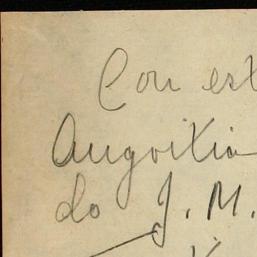 Con est
Angoitia
do J. M.